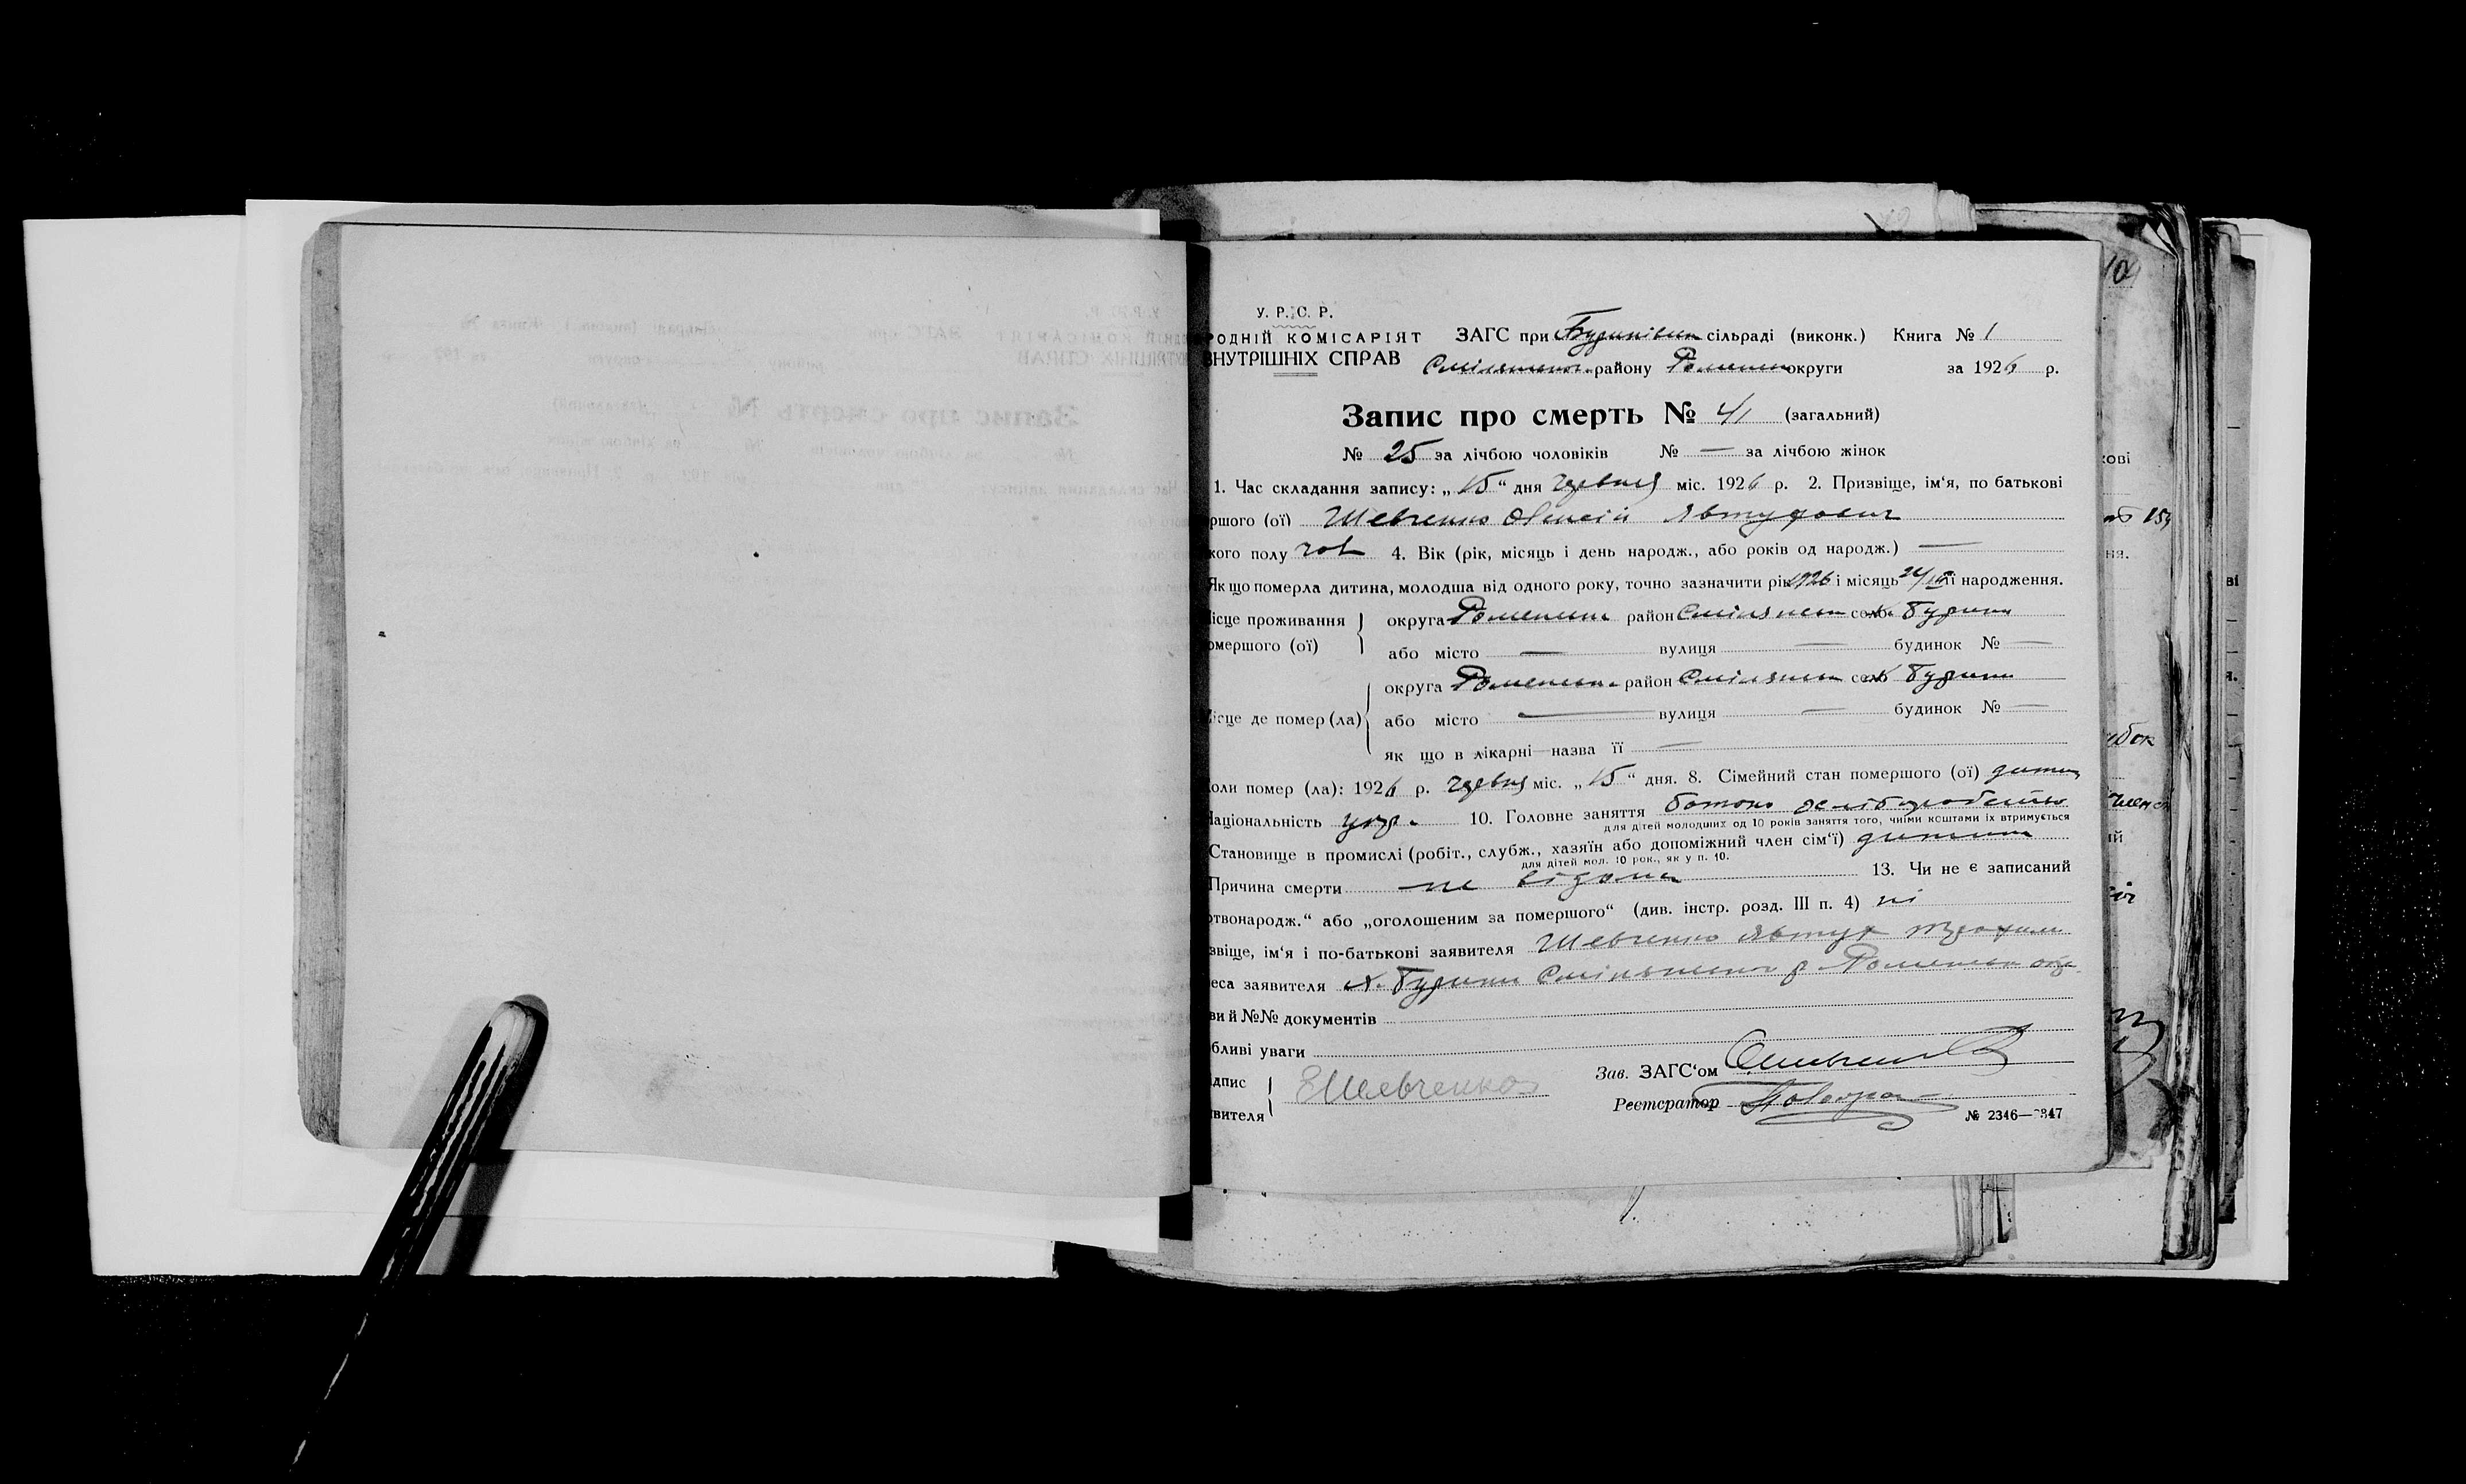 У. Р. С. Р.
РОДНІЙ КОМІСАРІЯТ ЗАГС при сільраді (виконк.) Книга № 1
ВНУТРІШНІХ СПРАВ району округи за 1926 р.
Запис про смерть № 41 (загальний)
№ 25 за лічбою чоловіків № — за лічбою жінок
1. Час складання запису: „15“ дня червня міс. 1926 р. 2. Призвіще, ім‘я, по батькові
ршого (ої) Шевченко Олексій Явтухович
кого полу чол 4. Вік (рік, місяць і день народж., або років од народж.) —
Як що померла дитина, молодша від одного року, точно зазначити рік 1926 і місяць її народження.
ісце проживання округа Роменськ район Смілянськ село х.
омершого (ої) або місто — вулиця — будинок № —
округа Роменськ район Смілянськ село х.
ісце де помер (ла) або місто — вулиця — будинок № —
як що в лікарні—назва її —
оли помер (ла): 1926 р. червня міс. „15“ дня. 8. Сімейний стан помершого (ої) дитина
аціональність укр. 10. Головне заняття батько хліборобство
для дітей молодших од 10 років заняття того, чиїми коштами їх втримується
Становище в промислі (робіт., служб., хазяїн або допоміжний член сім‘ї) дитина
для дітей мол. 10 рок., як у п. 10.
Причина смерти не відома 13. Чи не є записаний
ртвонародж.“ або „оголошеним за помершого“ (див. інстр. розд. III п. 4) ні
звіще, ім‘я і по-батькові заявителя Шевченко Явтух Трохим
еса заявителя х. Смілянського р Роменськ окр
ви й №№ документів
бливі уваги
дпис ЕШевченко Зав. ЗАГС‘ом
явителя Реєстратор
№ 2346—2347